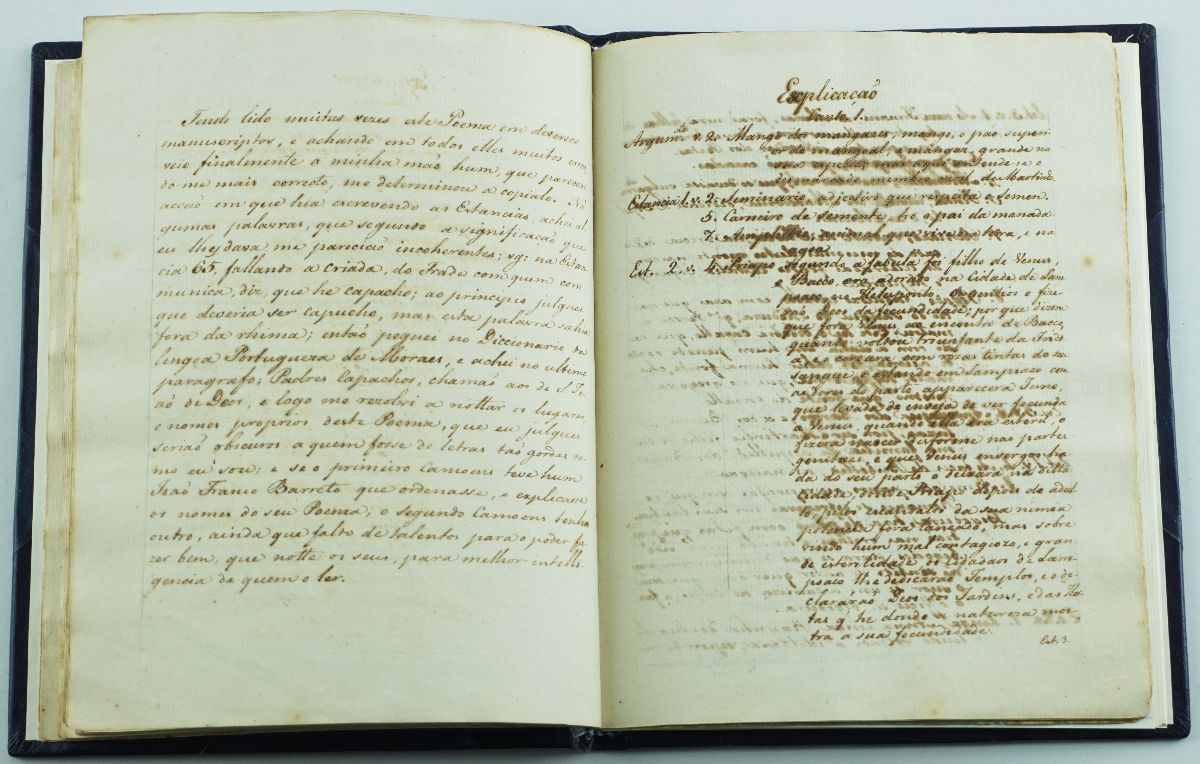 Tendo lido muitas vezes este Poema em diversos
manuscriptos, e achando em todos elles muitos erros
veio finalmente a minha maõ hum, que parecen
do me mais correcto, me determinou a copialo. Na
acçaõ em que hia escrevendo as Estancias, achei al
gumas palavras, que segundo a significaçaõ que
eu lhes dava, me pareciaõ incoherentes; vg: na Estan
cia 65, fallando a criada, do Frade com quem com
munica, diz, que he capacho; ao principio julguei
que deveria ser capucho, mas esta palavra sahia
fora da rhima; entaõ peguei no Diccionario da
lingoa Portugueza de Moraes, e achei no ultimo
paragrafo; Padres Capachos, chamaõ aos de S. Jo
aõ de Deos, e logo me rezolvi a nottar os lugares,
e nomes proprios deste Poema, que eu julguei
seriaõ obscuros a quem fosse de letras taõ gordas co
mo eu sou; e se o primeiro Camoens teve hum
Joaõ Franco Barreto que ordenasse, e explicasse
os nomes do seu Poema; o segundo Camoens tenha
outro, ainda que falto de talentos para o poder fa
zer bem, que notte os seus, para melhor intelli
gencia de quem o ler.
Explicaçaõ
Canto 1.
Argum.to v. 2. Mango dos mangazes, mango, o pao superi
or do mangoal, e mangaz, grande na
sua especie; mas aqui entende-se o
desmarcado membro viril de Martinho
Estancia 1. v. 2. Seminario, adjectivo que respeita o semen.
5. Carneiro de semente, he o pai da manada
7. Amphibio, animal que vive na terra, e na
agoa.
Est. 2. v. 4. Priapo segundo a fabula, foi filho de Venus,
e Bacco, era adorado na Cidade de Lam
psaco, no Helesponto. Os gentios o fize
raõ Deos da fecundidade; por que dizem
que fora Venus ao encontro de Bacco,
quando voltou triunfante da Indi
a, e o coroara com rozas tintas do seu
sangue, e estando em Lampsaco com
as dores do parto, apparecera Juno,
que levada de inveja de ver fecunda
a Venus, quando ella era esteril, o
fizera nascer disforme nas partes
genitaes, e que Venus envergonha
da do seu parto o deixara na ditta
Cidade, donde Priapo depois de adul
to pelos escandalos da sua nimea
potencia fora lançado, mas sobre
vindo hum mal contagiozo, e gran
de esterilidade os Cidadaõs de Lam
psaco, lhe dedicaraõ Templos, e o de
clararaõ Deos dos Jardins, e das Hor
tas q. he donde a natureza mos
tra a sua fecundidade.
Est. 3.